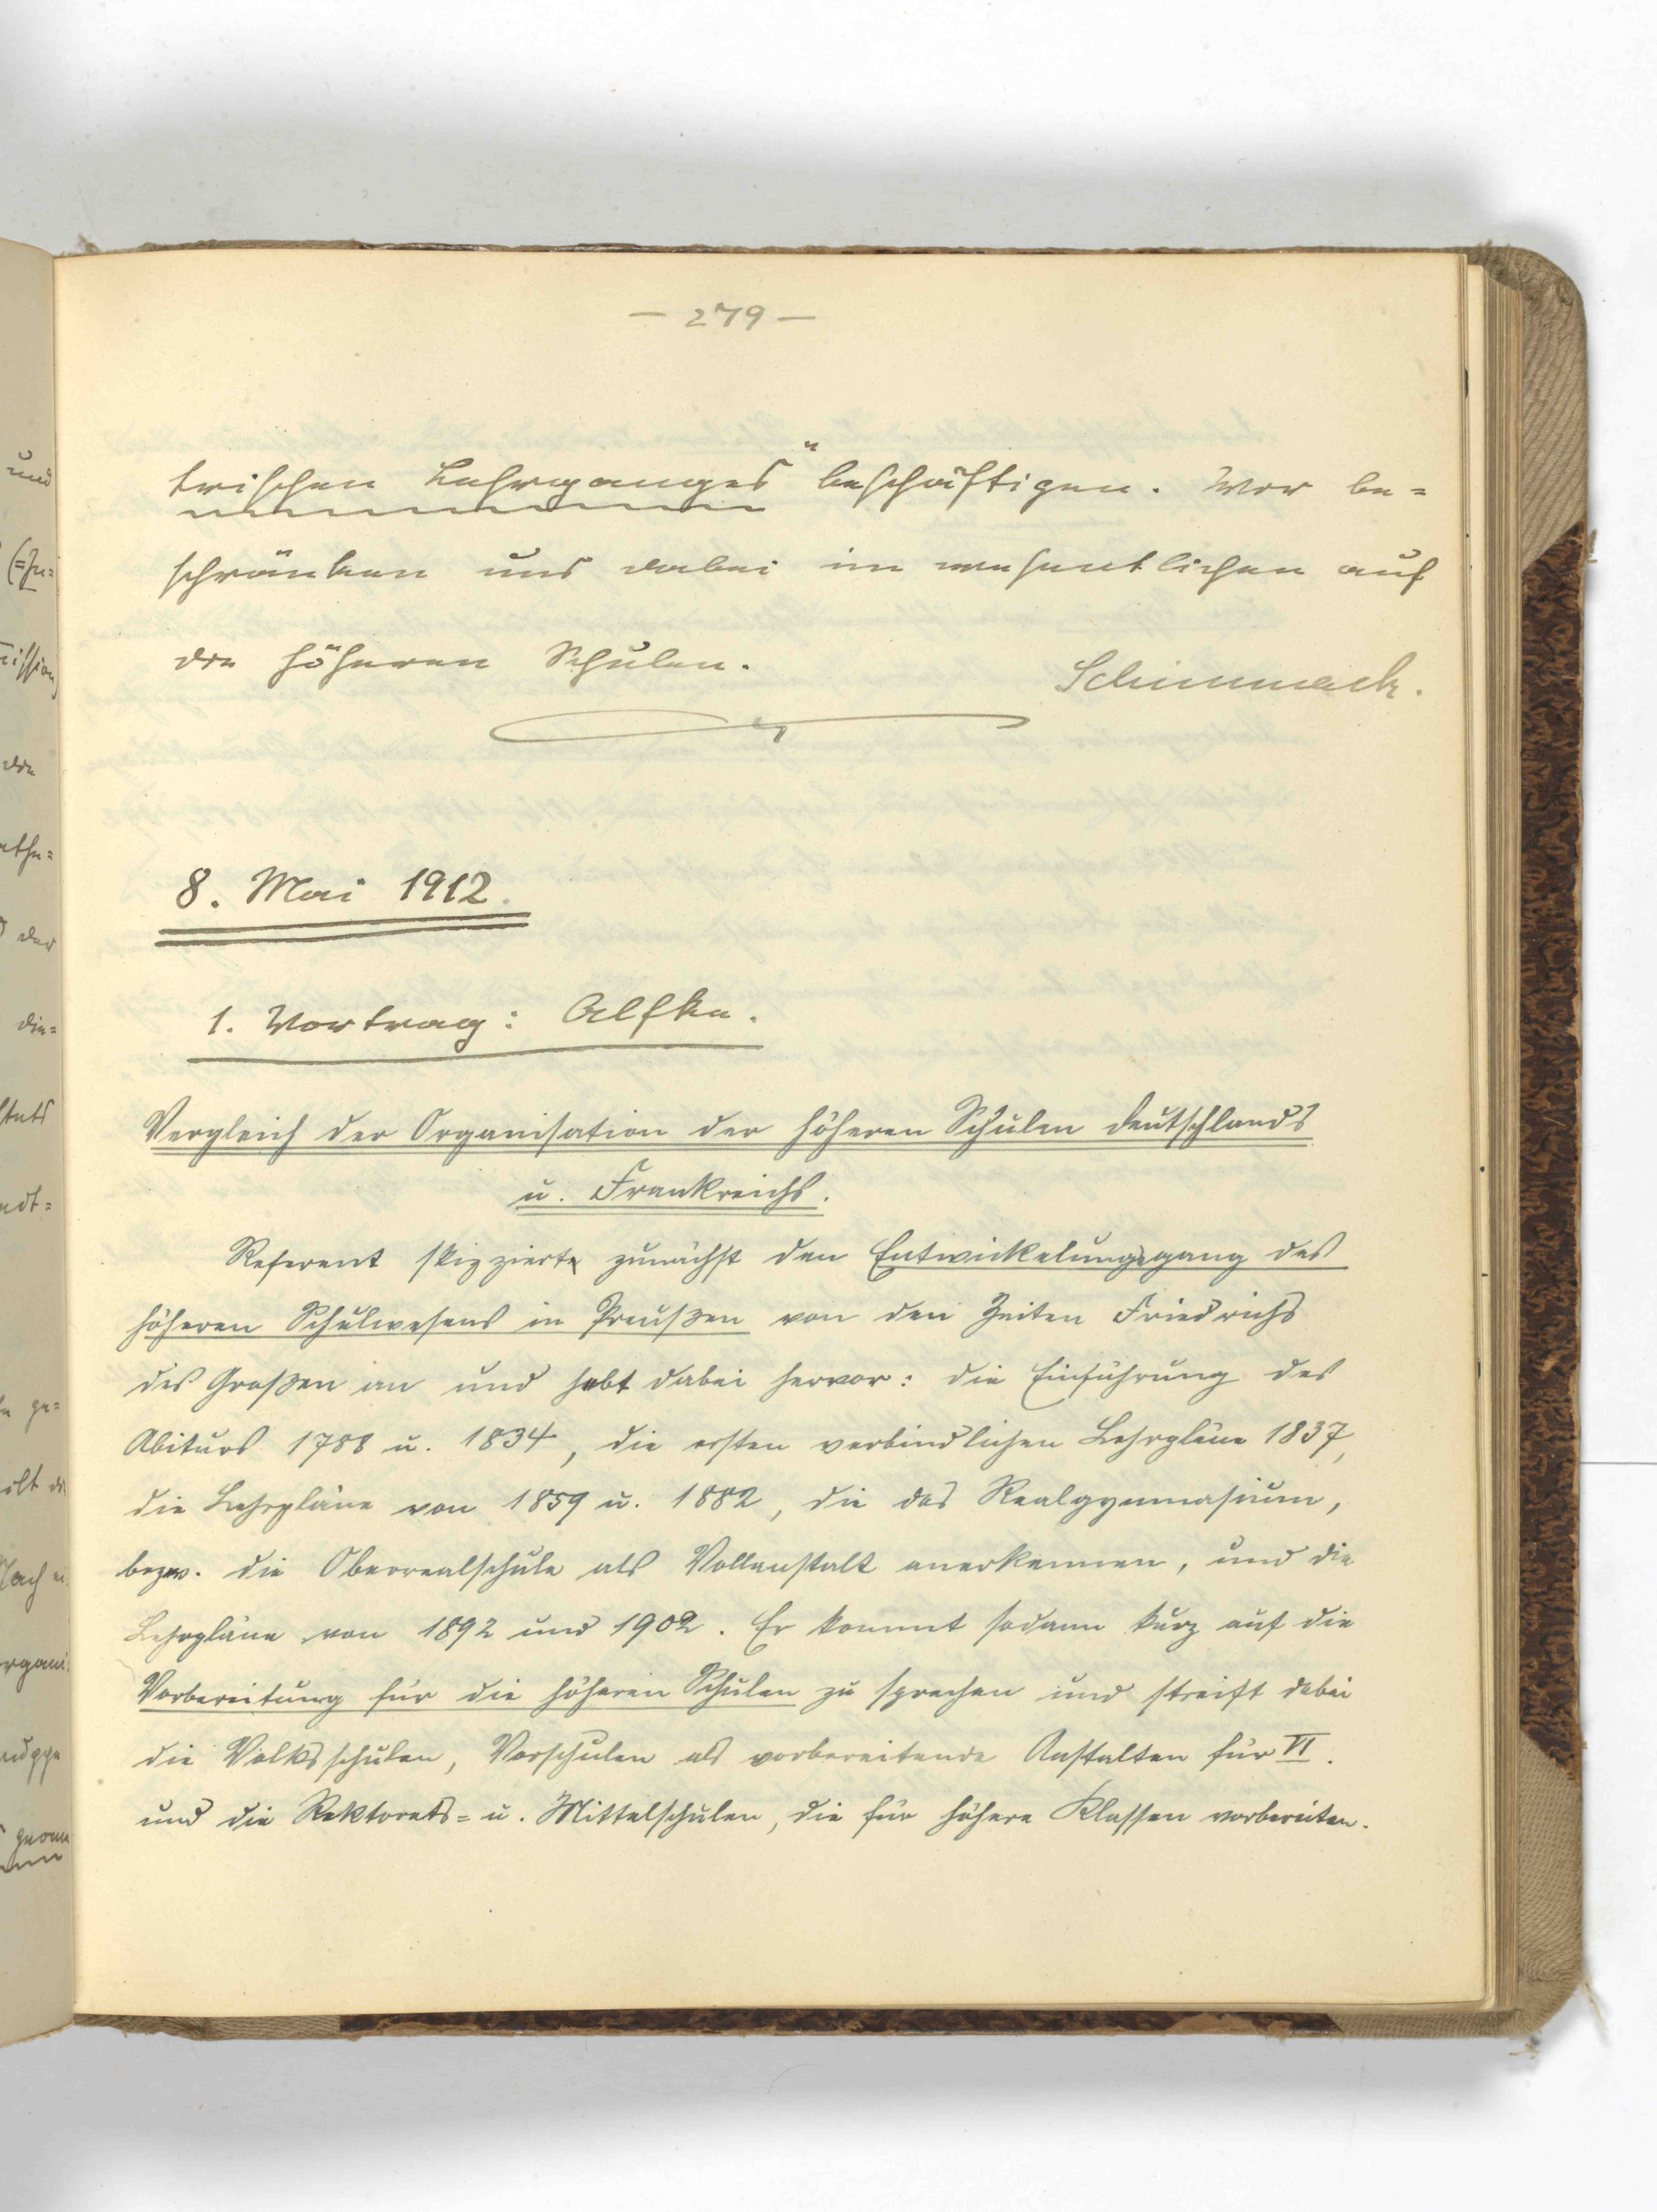 — 279 —
trischen Lehrganges" beschäftigen. Wir be=
schränken uns dabei im wesentlichen auf
die höheren Schulen.
Schimmack.
8. Mai 1912.
1. Vortrag: Alfke.
Vergleich der Organisation der höheren Schulen Deutschlands
u. Frankreichs.
Referent skizzierte zunächst den Entwickelungsgang des
höheren Schulwesens in Preußen von den Zeiten Friedrichs
des Großen an und hebt dabei hervor: die Einführung des
Abiturs 1788 u. 1834, die ersten verbindlichen Lehrpläne 1837,
die Lehrpläne von 1859 u. 1882, die das Realgymnasium,
bezw. die Oberrealschule als Vollanstalt anerkennen, und die
Lehrpläne von 1892 und 1902. Er kommt sodann kurz auf die
Vorbereitung für die höheren Schulen zu sprechen und streift dabei
die Volksschulen, Vorschulen als vorbereitende Anstalten für VI.
und die Rektorats= u. Mittelschulen, die für höhere Klassen vorbereiten.